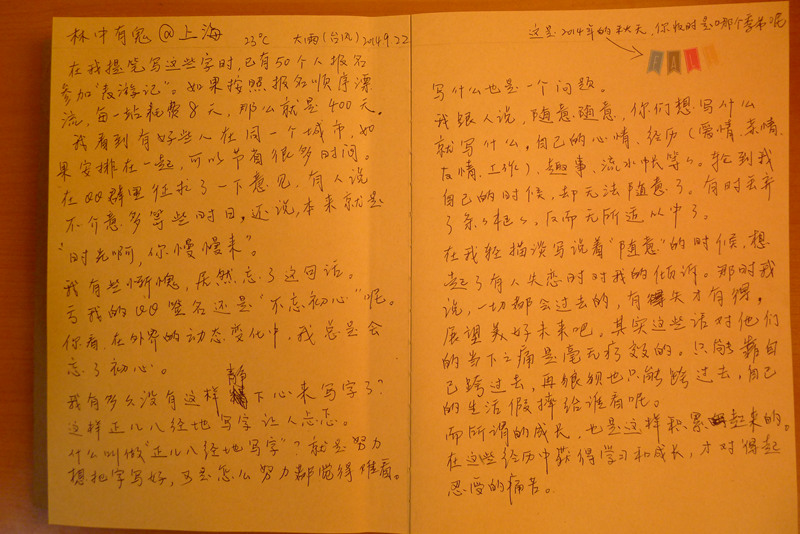 林中有鬼@上海 23℃ 大雨(台风) 2014.9.22
在我提笔写这些字时，已有50个人报名
参加"表游记"。如果按照报名顺序漂
流，每一站耗费8天，那么就是400天。
我看到有好些人在同一个城市，如
果安排在一起，可以节省很多时间。
在QQ群里征求了一下意见，有人说
不介意多等些时日，还说，本来就是
"时光啊，你慢慢来"。
我有些惭愧，居然忘了这句话。
亏我的QQ签名还是"不忘初心"呢。
你看，在外界的动态变化中，我总是会
忘了初心。
我有多久没有这样静下心来写字了？
这样正儿八经地写字让人忐忑。
什么叫做"正儿八经地写字"？就是努力
想把字写好，可是怎么努力都觉得难看。
这是2014年的秋天，你收时是哪个季节呢
FALL
写什么也是一个问题。
我跟人说，随意随意，你们想写什么
就写什么，自己的心情、经历（爱情、菜情、
友情、工作）、趣事、流水帐等等。轮到我
自己的时候，却无法随意了。有时丢弃
了条条框框，反而无所适从中了。
在我轻描淡写说着"随意"的时候，想
起了有人失恋时对我的倾诉。那时我
说，一切都会过去的，有失才有得，
展望美好未来吧，其实这些话对他们
的当下之痛是毫无疗效的。只能靠自
己跨过去，再狼狈也只能跨过去，自己
的生活假摔给谁看呢。
而所谓的成长，也是这样积累起来的。
在这些经历中获得学习和成长，才对得起
忍受的痛苦。